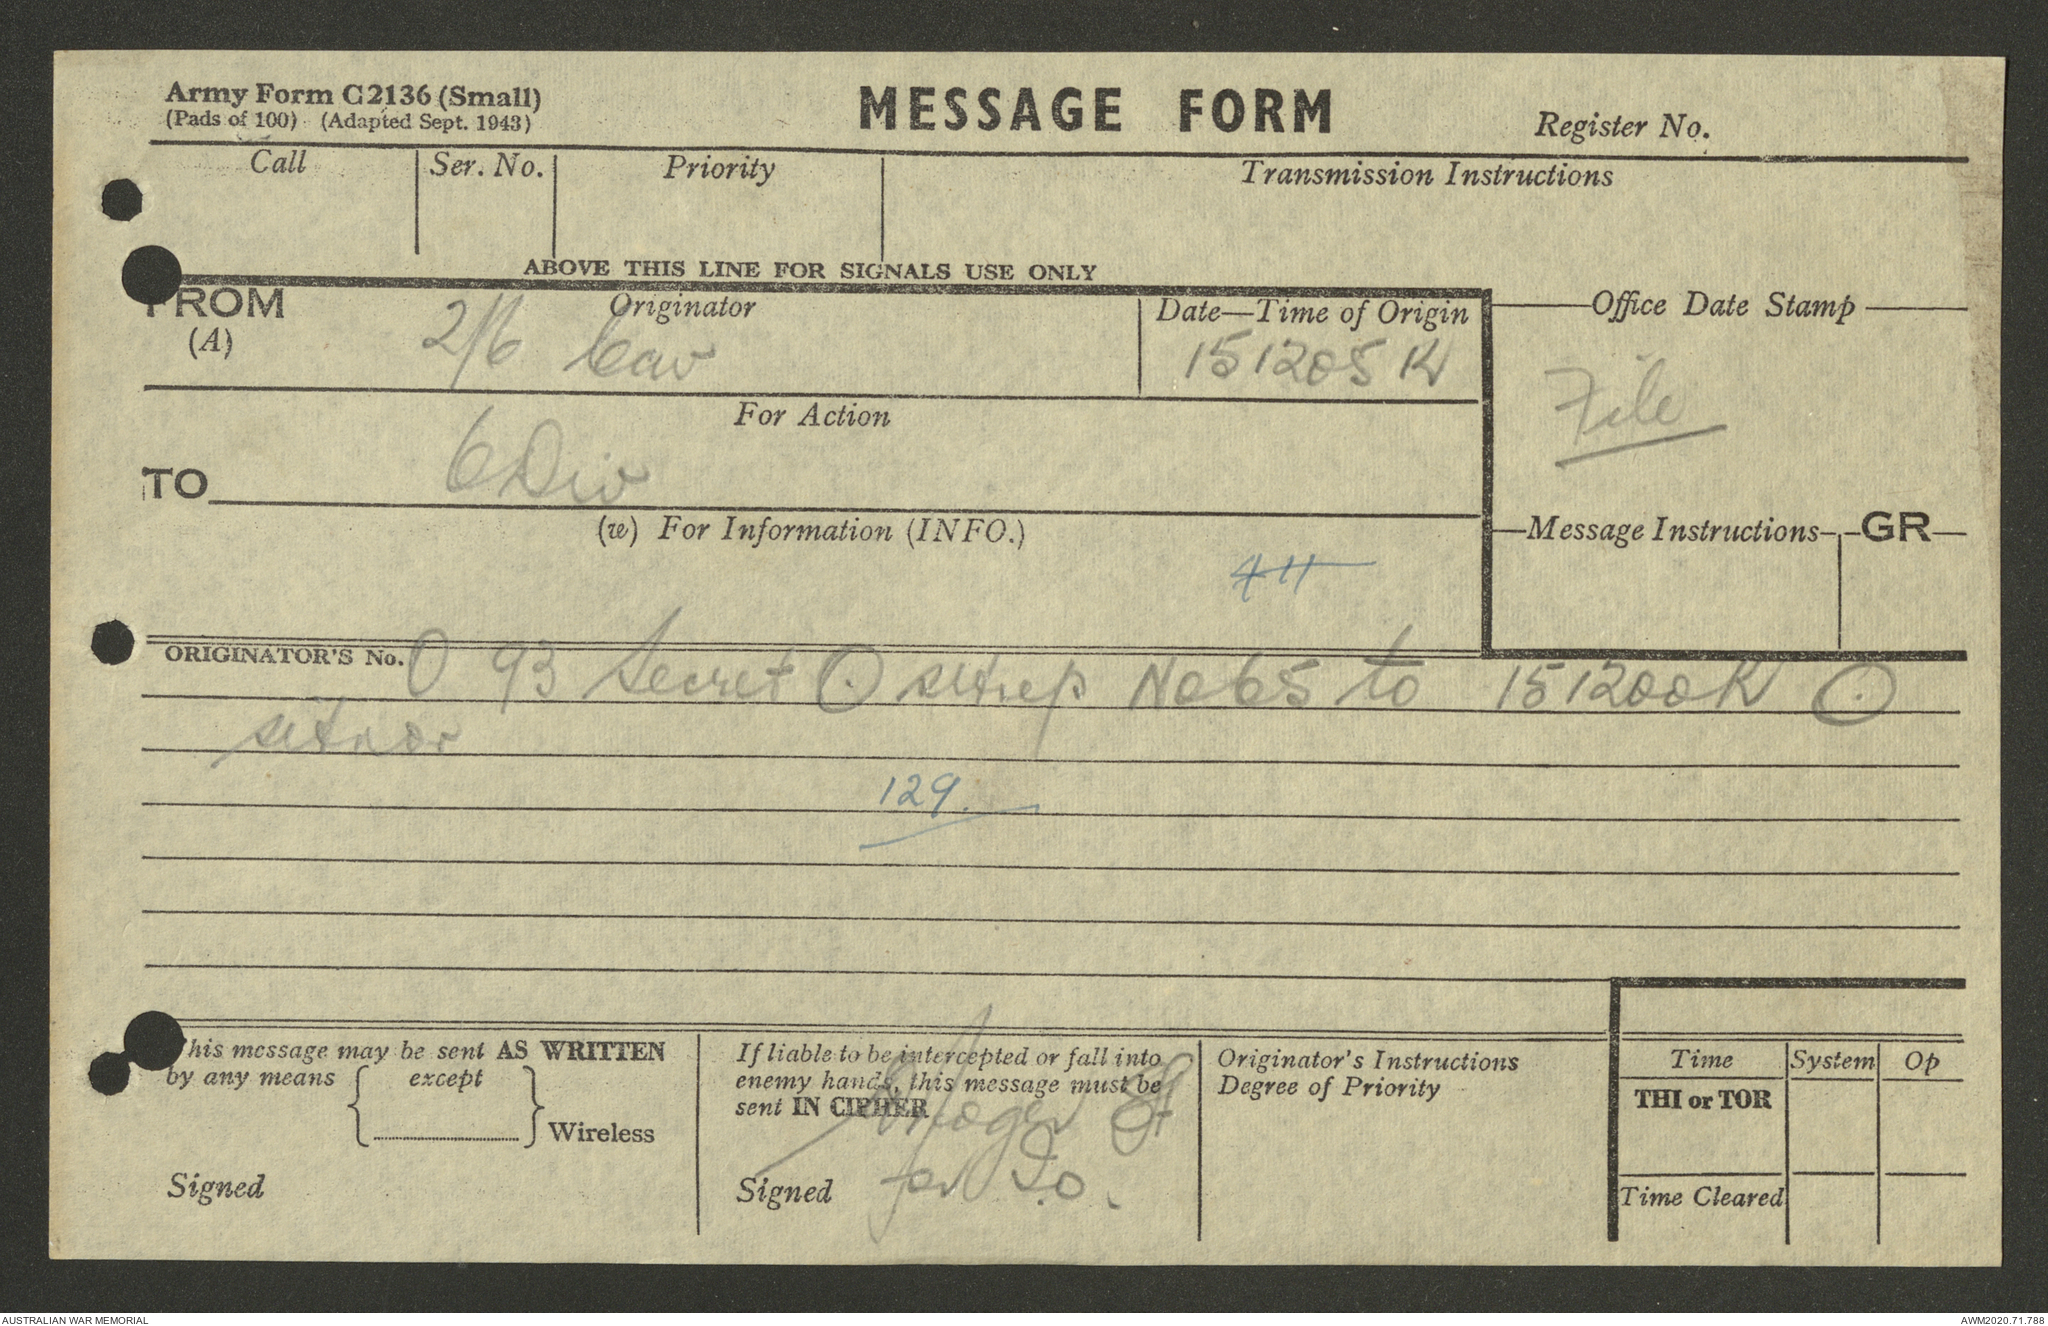 Army Form C2136 (Small)
(Pads of 100) (Adapted Sept. 1943)
MESSAGE FORM
Register No.
Call
Ser. No.
Priority
Transmission Instructions
ABOVE THIS LINE FOR SIGNALS USE ONLY
FROM
(A)
Originator
2/6 Cav
Date—Time of Origin
151205K
Office Date Stamp
File
For Action
TO
6 Div
(w) For Information (INFO.)
Message Instructions
GR
411
ORIGINATOR'S No. O 93 Secret O sitrep No 65 to 151200K O
sitnor
129.
This message may be sent AS WRITTEN
by any means { except } Wireless
Signed
If liable to be intercepted or fall into
enemy hands, this message must be
sent IN CIPHER
Signed for I.O.
Originator's Instructions
Degree of Priority
Time
System
Op
THI or TOR
Time Cleared
AUSTRALIAN WAR MEMORIAL
AWM2020.71.788